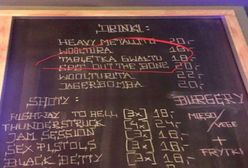 DRINKI:
HEAVY METALITO 20,-
WOOLTURA 18,-
TABLETKA GWAŁTU 18,-
SPIT OUT THE BONE 20,-
WOOLTURITA 22,-
JAGERBOMBA 20,-
SHOTY:
HIGHWAY TO HELL [3x] 18,-
THUNDERSTRUCK [4x]
JAM SESSION [4x]
SEX PISTOLS [4x]
BLACK BETTY
BURGERY
MIĘSO/
VEGE
+
FRYTKI